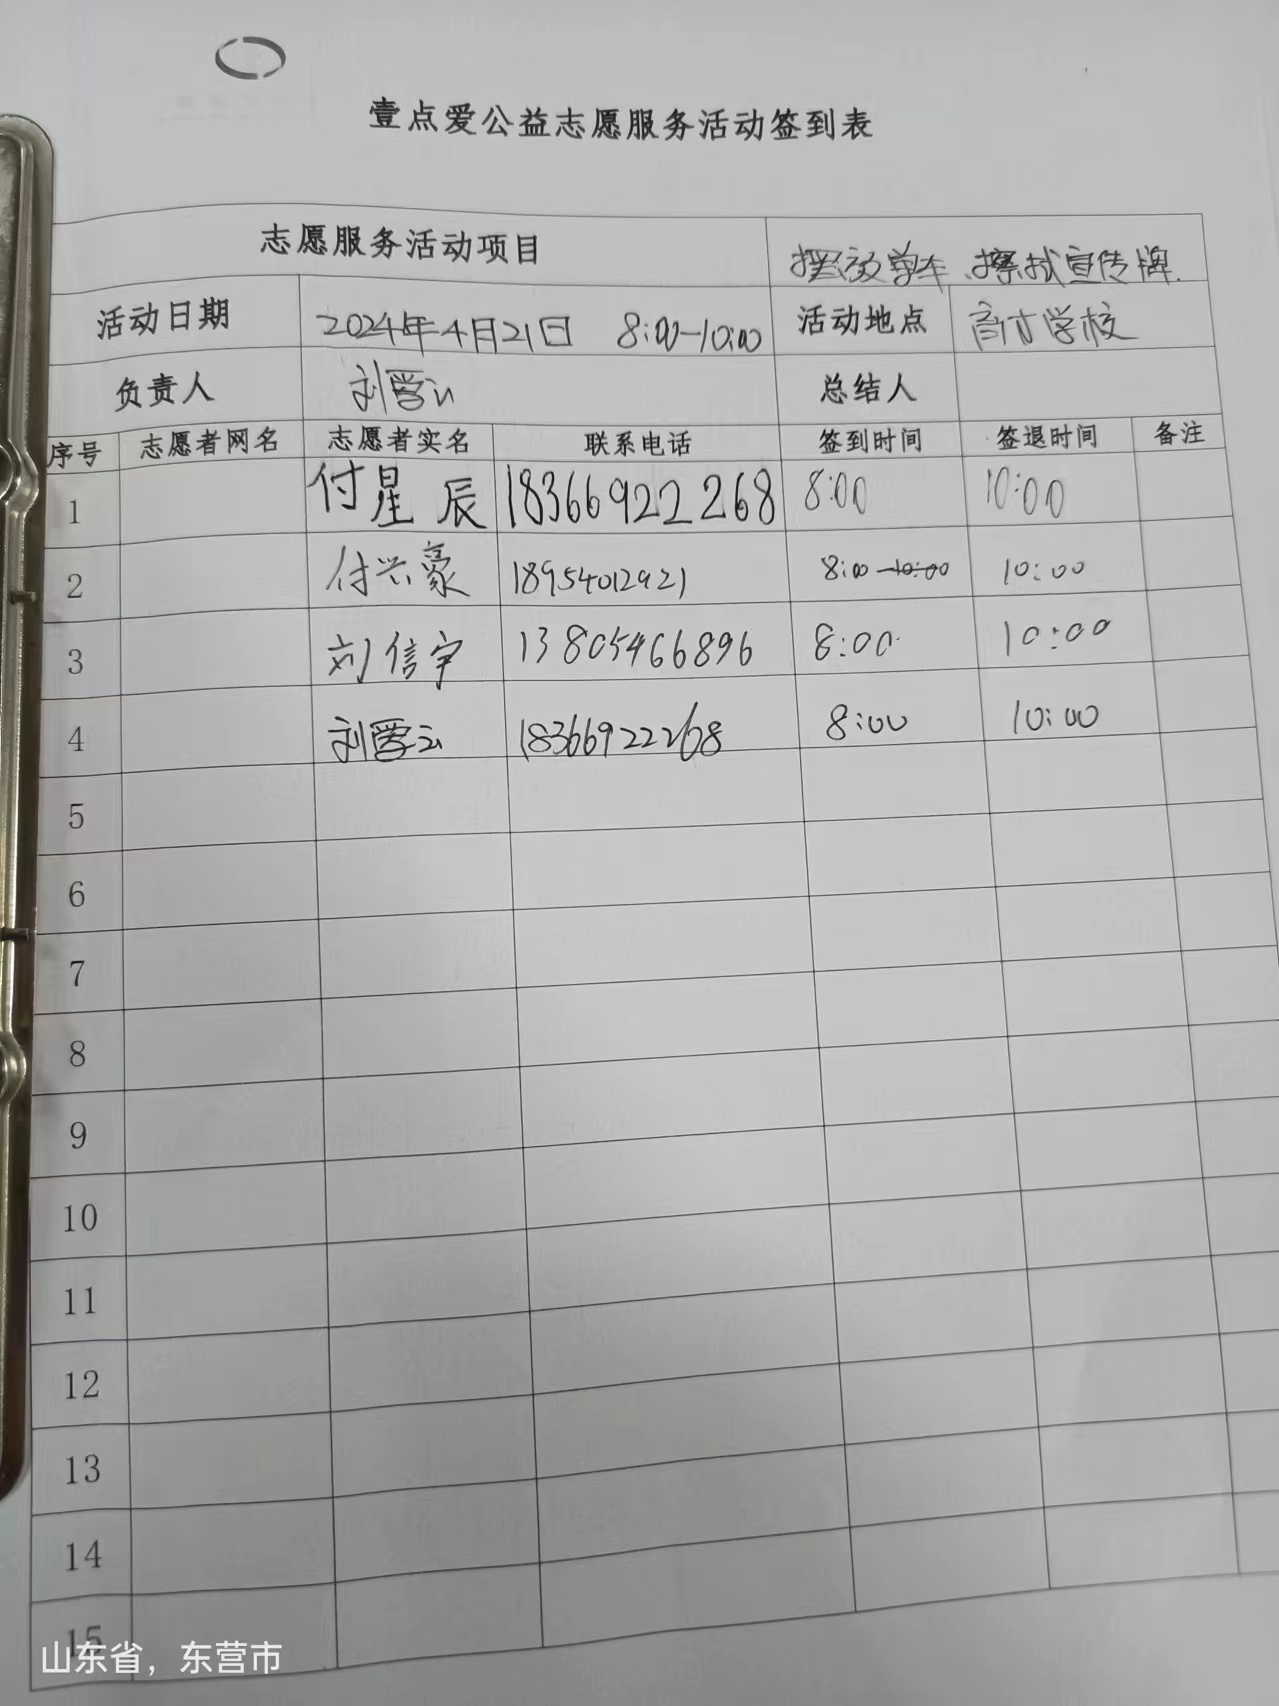 壹点爱公益志愿服务活动签到表
志愿服务活动项目 摆放单车、擦拭宣传牌.
活动日期 2024年4月21日 8:00-10:00 活动地点 学校
负责人 刘雪云 总结人
序号 志愿者网名 志愿者实名 联系电话 签到时间 签退时间 备注
1 付星辰 18366922268 8:00 10:00
2 付兴豪 18954012921 8:00-10:00 10:00
3 刘信宇 13805466896 8:00 10:00
4 刘雪云 18366922268 8:00 10:00
5
6
7
8
9
10
11
12
13
14
15
山东省，东营市